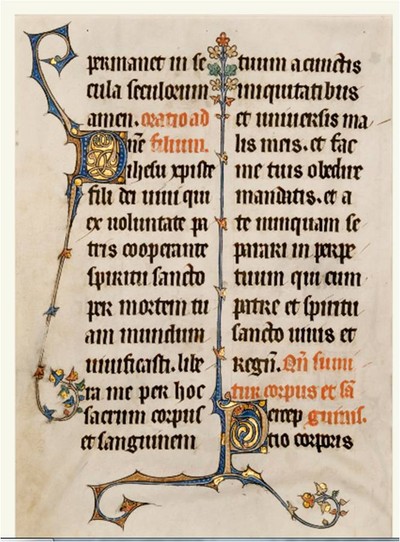 permanet in se
cula seculorum
amen. oratio ad
Dn̄e filium.
ihesu xpiste
fili dei uiui qui
ex uoluntate pa
tris cooperante
spiritu sancto
per mortem tu
am mundum
uiuificasti. libe
ra me per hoc
sacrum corpus
et sanguinem
tuum a cunctis
iniquitatibus
et uniuersis ma
lis meis. et fac
me tuis obedire
mandatis. et a
te nunquam se
parari in perpe
tuum qui cum
patre et spiritu
sancto uiuis et
regn̄. Qn̄ sumi
tur corpus et sā
Percep guinis.
tio corporis